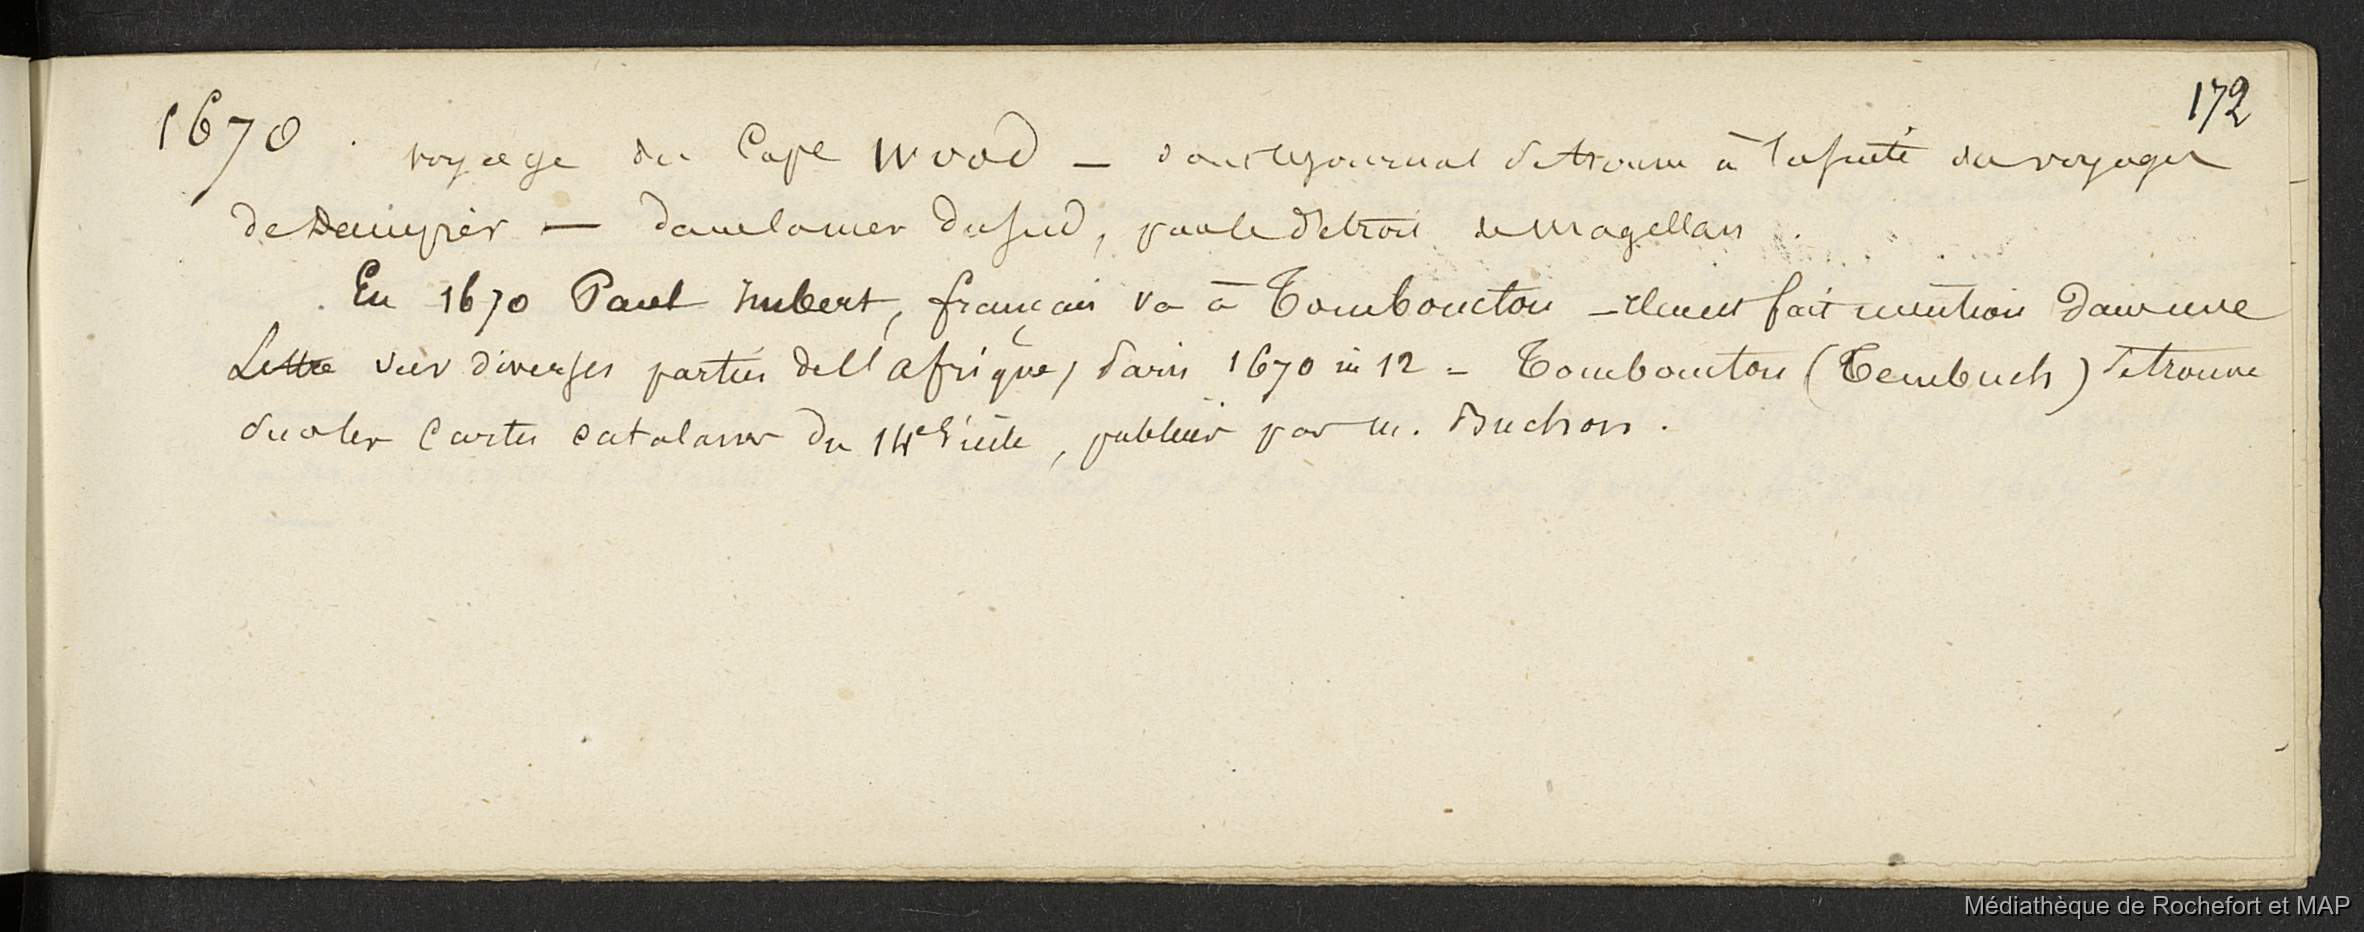 172
1670. voyage du Cape Wood — dont le journal se trouve à la suite des voyages
de Dampier — dans la mer du sud, par le détroit de Magellan.
En 1670 Paul Imbert, français va à Tombouctou — il en est fait mention dans une
Lettre sur diverses parties de l'afrique, Paris 1670 in 12 = Tombouctou (Tembuch) se trouve
sur les Cartes catalanes du 14e siècle, publiées par m. Buchon.
Médiathèque de Rochefort et MAP